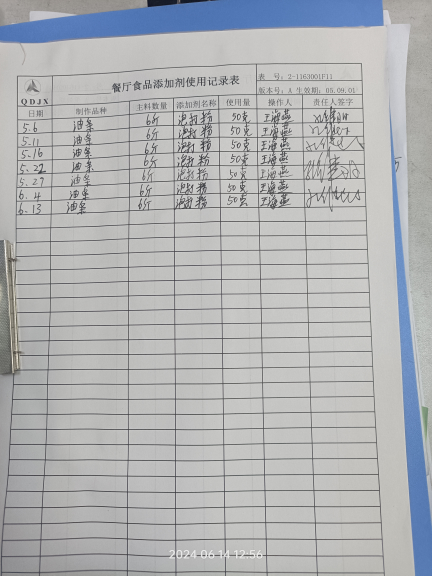 餐厅食品添加剂使用记录表
表 号：2-1163001F11
版本号：A 生效期：05.09.01
QDJX
日期 制作品种 主料数量 添加剂名称 使用量 操作人 责任人签字
5.6 油条 6斤 泡打粉 50克 王海燕
5.11 油条 6斤 泡打粉 50克 王海燕
5.16 油条 6斤 泡打粉 50克 王海燕
5.22 油条 6斤 泡打粉 50克 王海燕
5.27 油条 6斤 泡打粉 50克 王海燕
6.4 油条 6斤 泡打粉 50克 王海燕
6.13 油条 6斤 泡打粉 50克 王海燕
2024 06 14 12:56